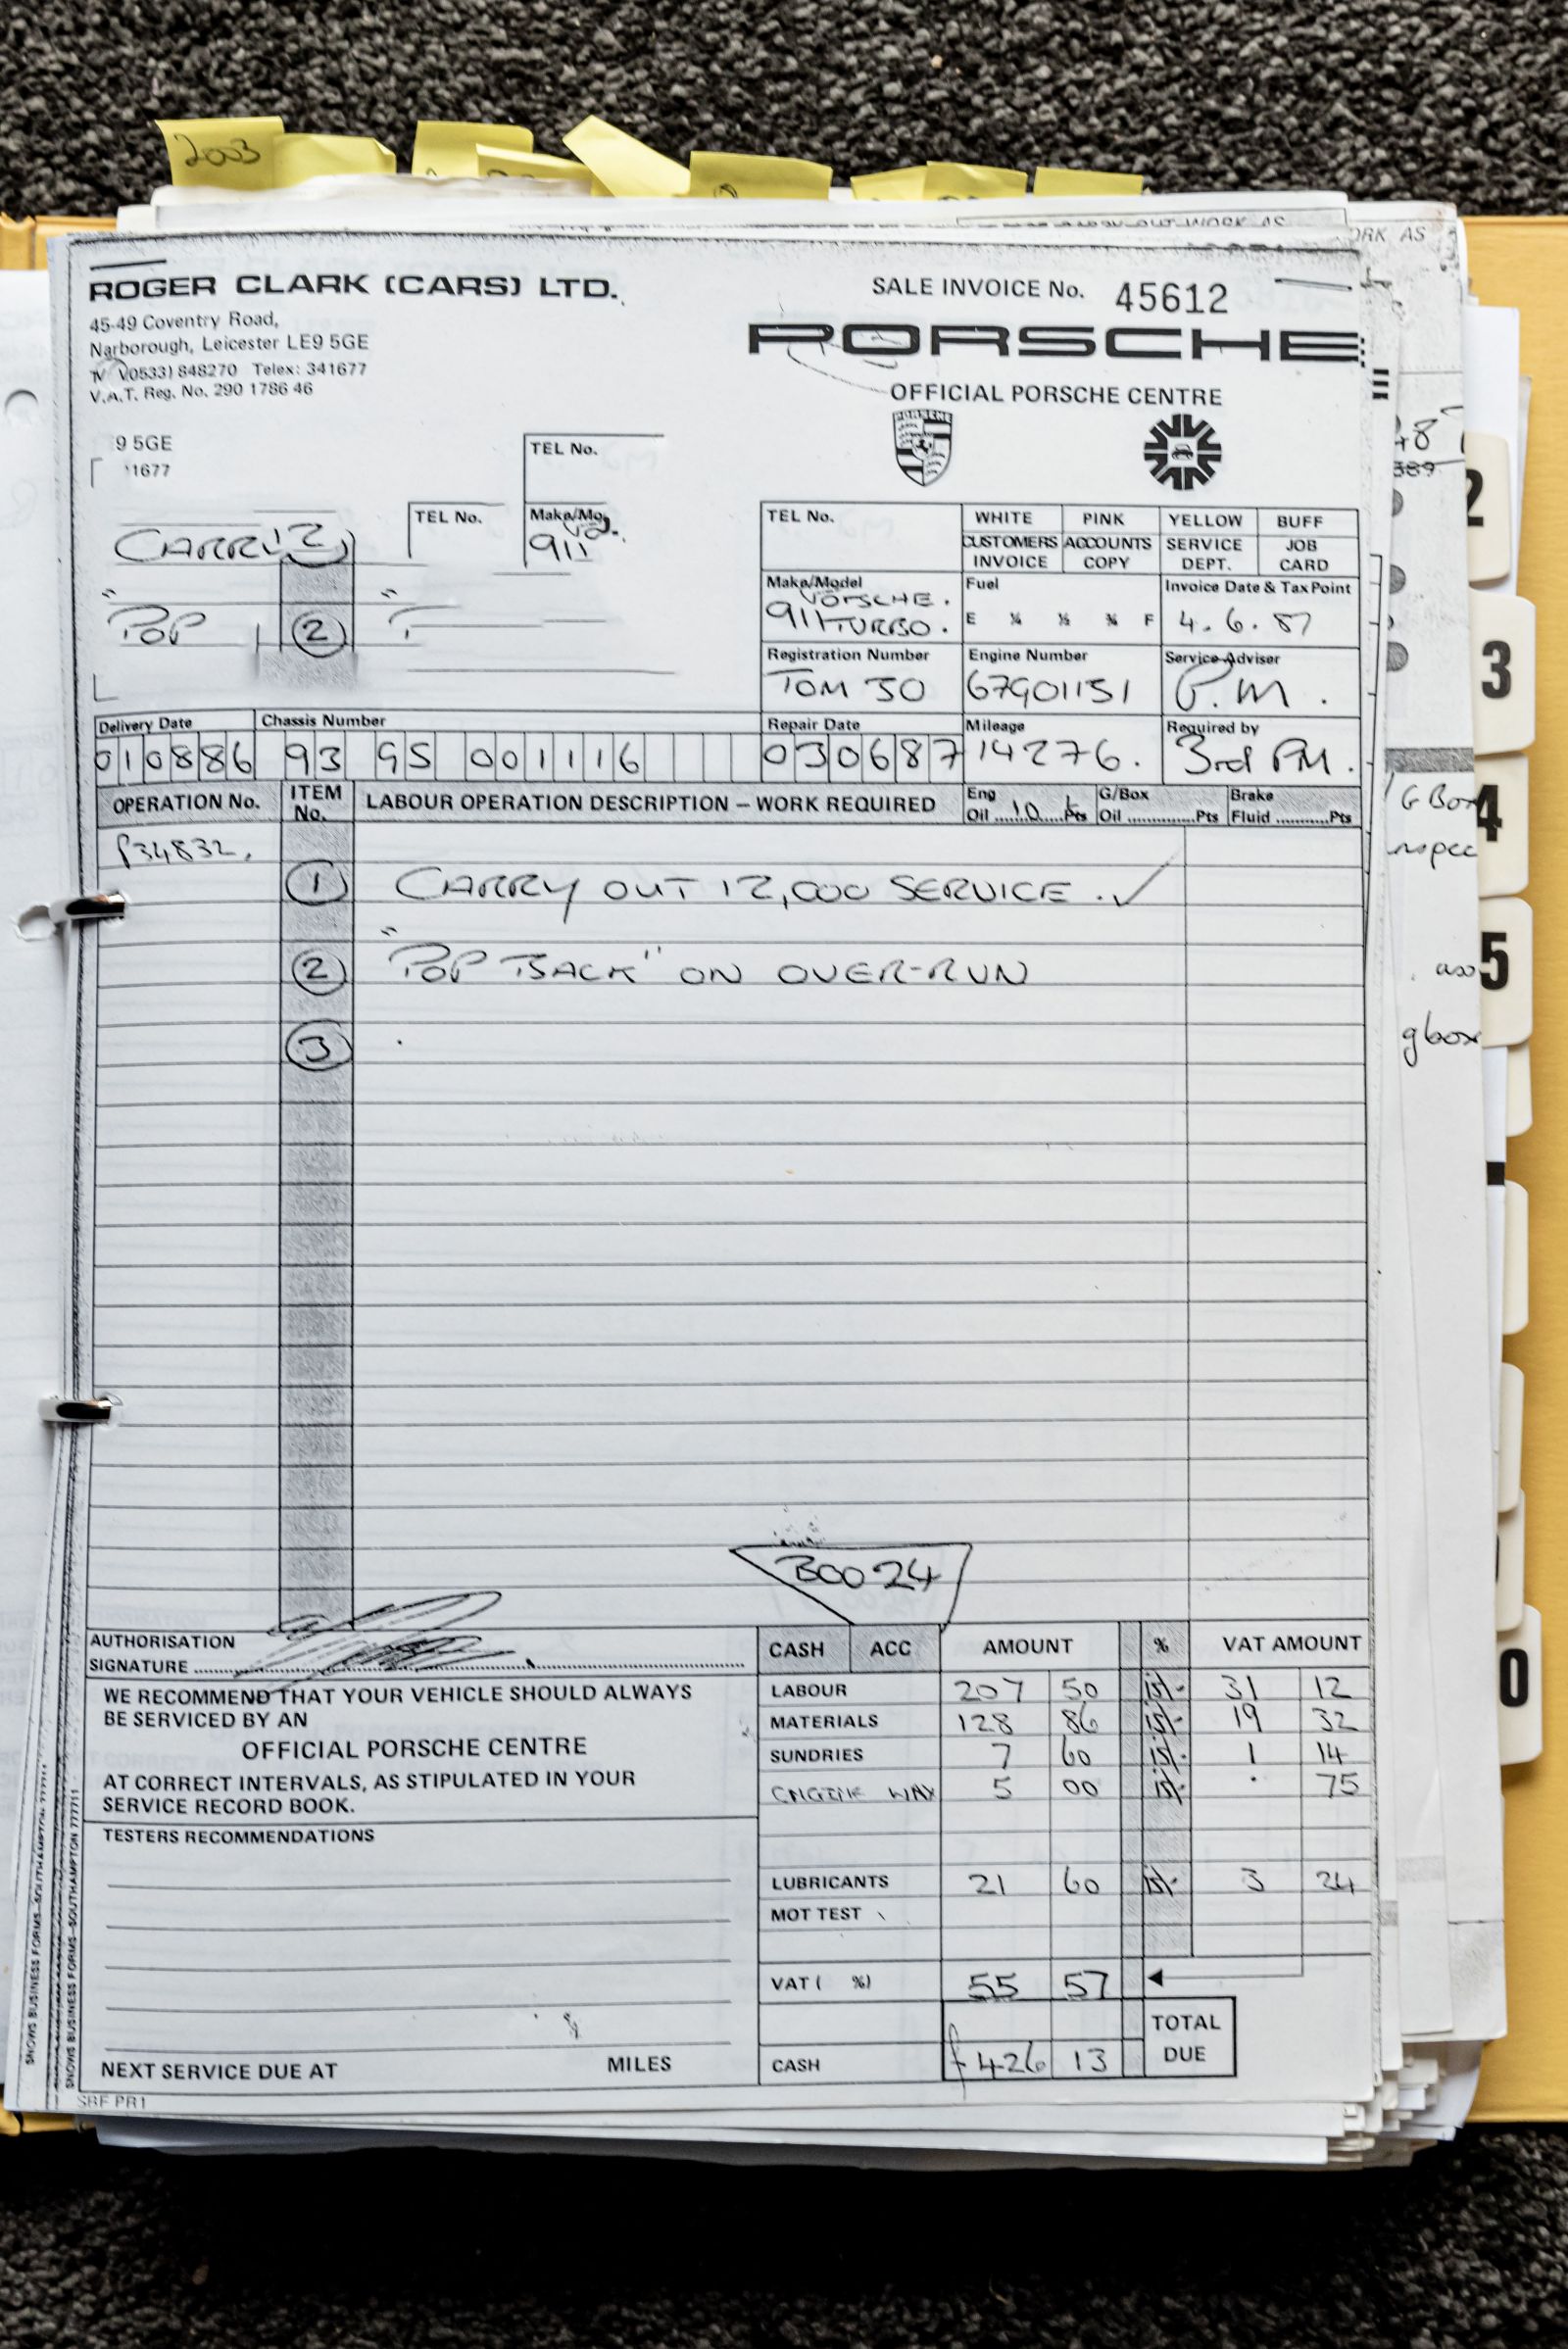 2003
ORK AS
ROGER CLARK (CARS) LTD.
45-49 Coventry Road,
Narborough, Leicester LE9 5GE
(0533) 848270 Telex: 341677
V.A.T. Reg. No. 290 1786 46
SALE INVOICE No. 45612
PORSCHE
OFFICIAL PORSCHE CENTRE
PORSCHE
9 5GE
1677
TEL No.
TEL No.
Make/Mo
911
CARRY
12
POP
2
TEL No.
WHITE PINK YELLOW BUFF
CUSTOMERS INVOICE
ACCOUNTS COPY
SERVICE DEPT.
JOB CARD
Make/Model
PORSCHE.
911 TURBO.
Fuel
E ¼ ½ ¾ F
Invoice Date & Tax Point
4.6.87
Registration Number
TOM 50
Engine Number
67G01151
Service Adviser
P.M.
Delivery Date
010886
Chassis Number
93 GS 001116
Repair Date
030687
Mileage
14276.
Required by
3rd PM.
OPERATION No.
ITEM No.
LABOUR OPERATION DESCRIPTION – WORK REQUIRED
Eng Oil 10 Pts
G/Box Oil Pts
Brake Fluid Pts
P34832.
1 CARRY OUT 12,000 SERVICE. ✓
2 "POP BACK" ON OVER-RUN
3
BOO 24
AUTHORISATION
SIGNATURE
CASH ACC AMOUNT % VAT AMOUNT
LABOUR 207 50 15% 31 12
MATERIALS 128 86 15% 19 32
SUNDRIES 7 60 15% 1 14
ENGINE WAX 5 00 15% . 75
LUBRICANTS 21 60 15% 3 24
MOT TEST
VAT ( %) 55 57
CASH £426 13
TOTAL DUE
WE RECOMMEND THAT YOUR VEHICLE SHOULD ALWAYS
BE SERVICED BY AN
OFFICIAL PORSCHE CENTRE
AT CORRECT INTERVALS, AS STIPULATED IN YOUR
SERVICE RECORD BOOK.
TESTERS RECOMMENDATIONS
NEXT SERVICE DUE AT MILES
SBF PR1
SNOWS BUSINESS FORMS–SOUTHAMPTON 777711
SNOWS BUSINESS FORMS–SOUTHAMPTON 777711
2
3
4
5
0
G Box
nspec
gbox